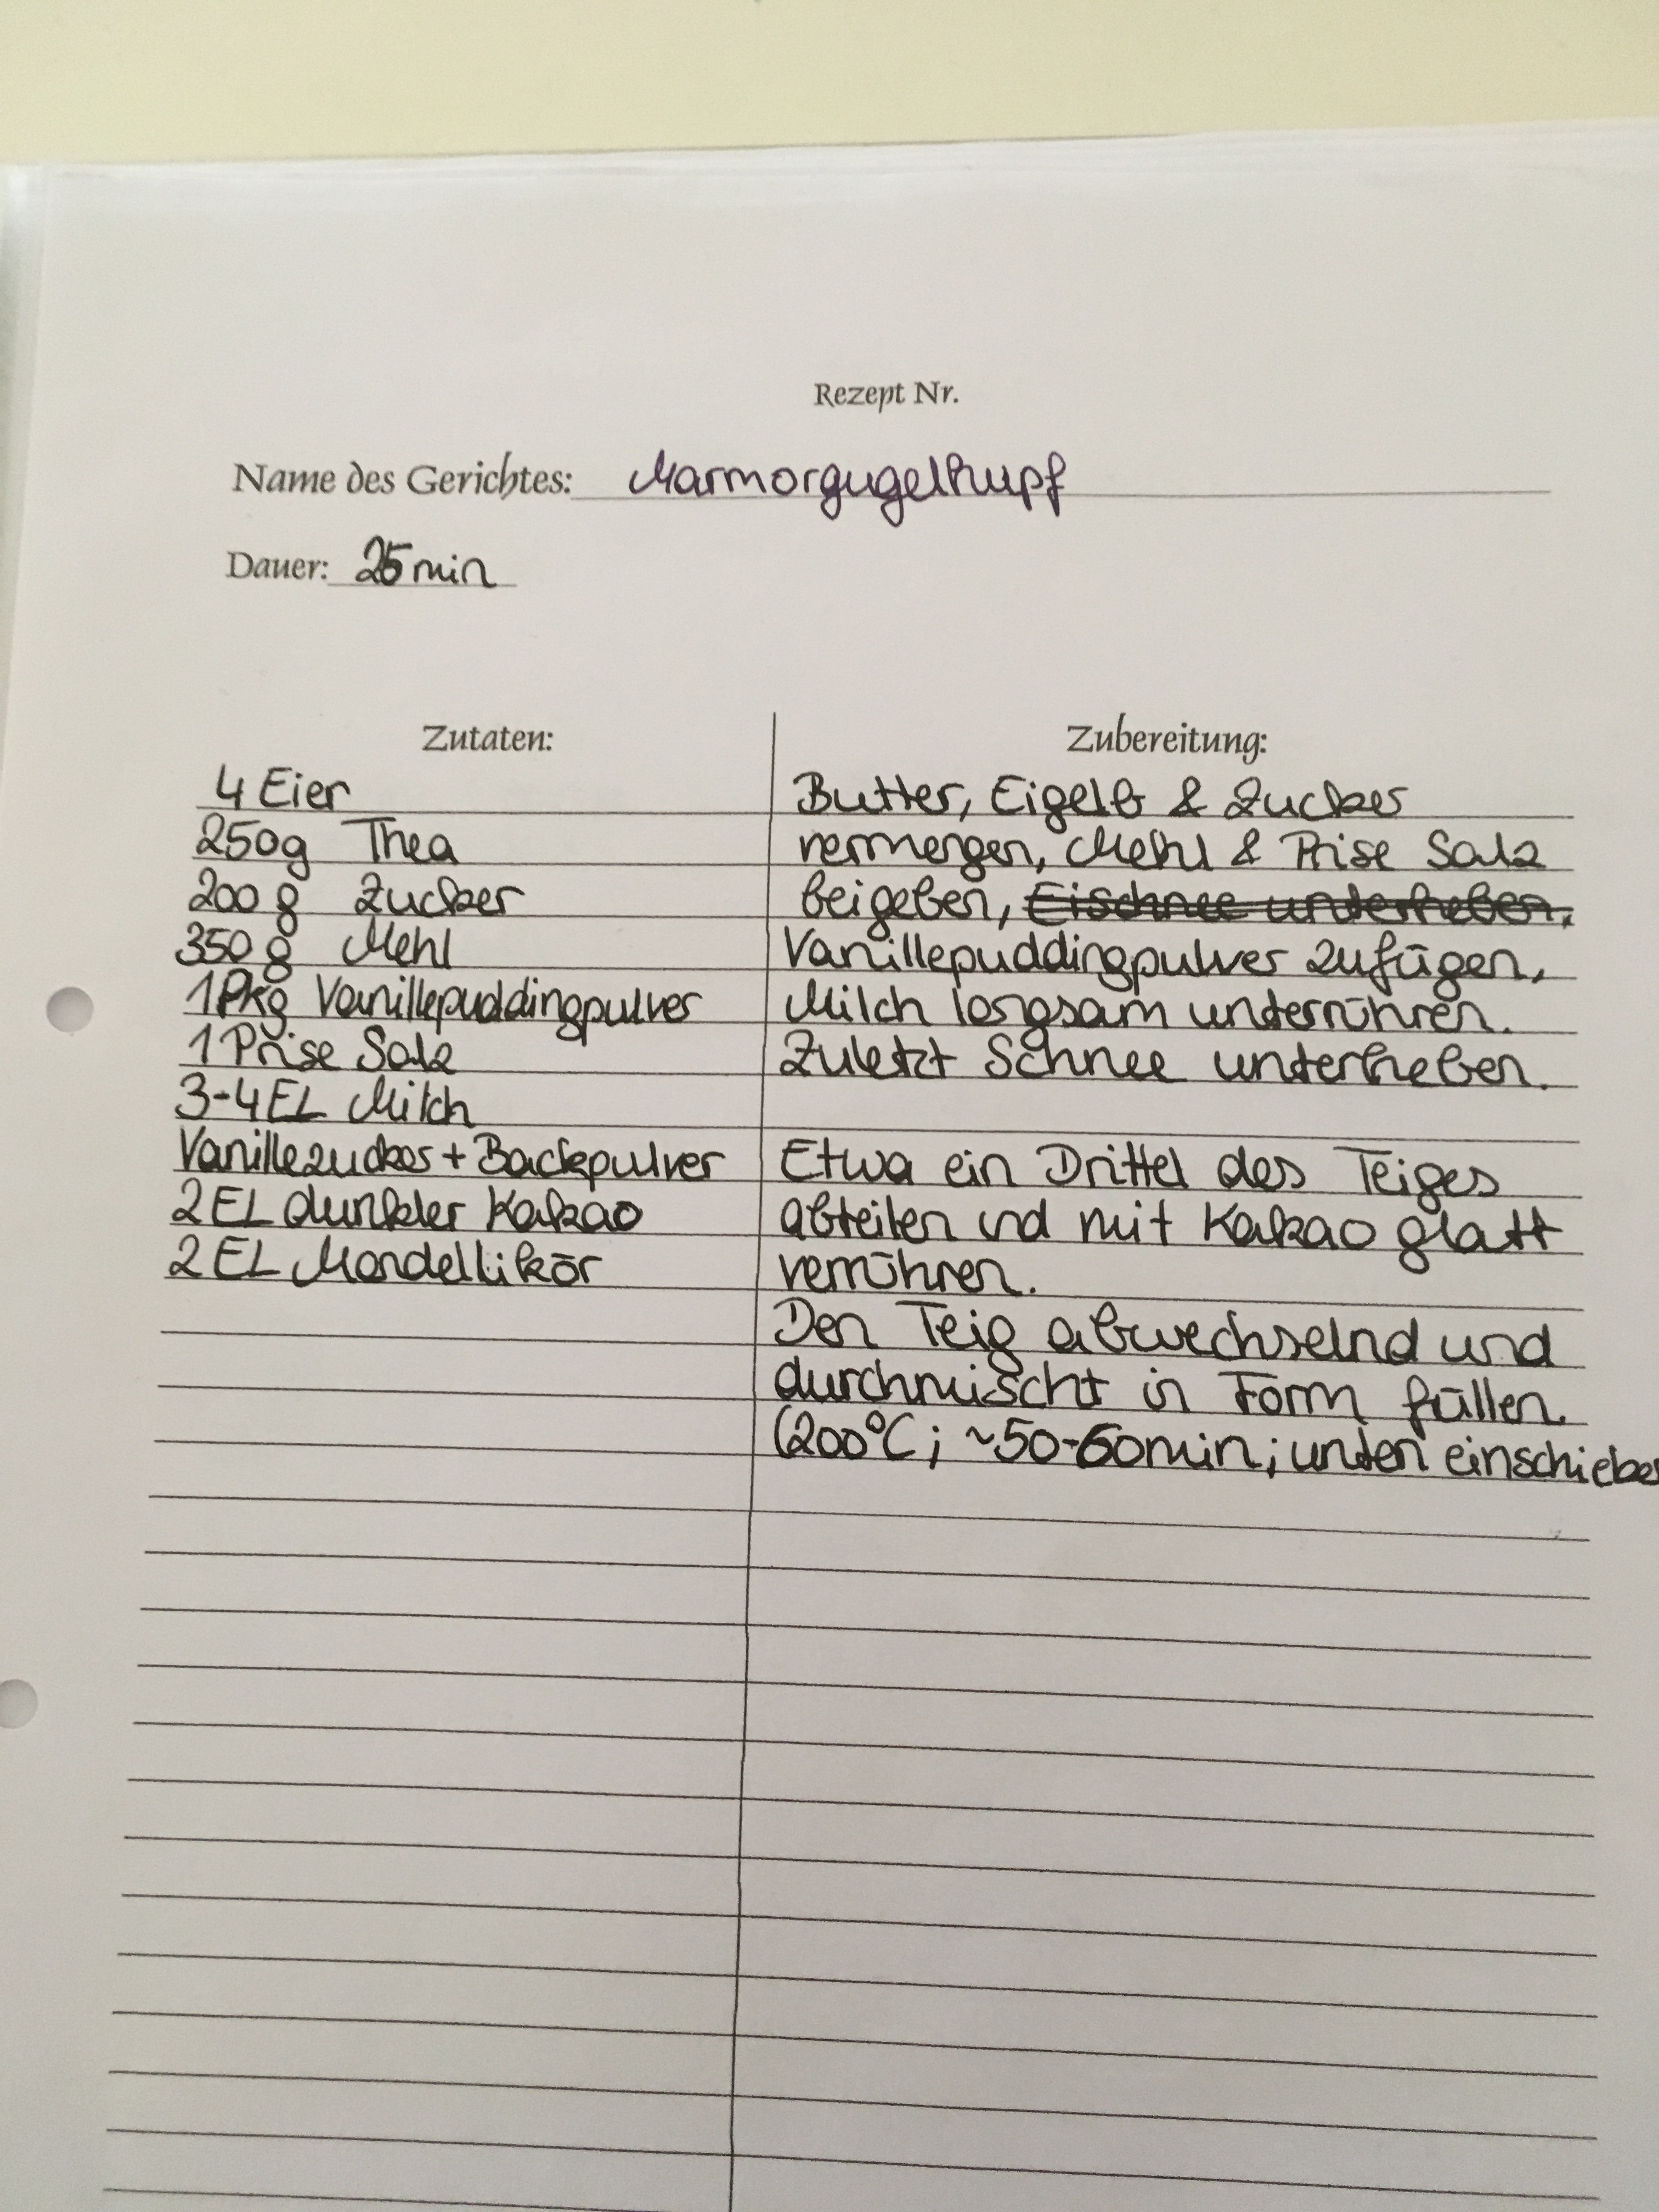 Rezept Nr.
Name des Gerichtes: Marmorgugelhupf
Dauer: 25 min
Zutaten:
4 Eier
250g Thea
200 g Zucker
350 g Mehl
1 Pkg Vanillepuddingpulver
1 Prise Salz
3-4 EL Milch
Vanillezucker + Backpulver
2 EL dunkler Kakao
2 EL Mandellikör
Zubereitung:
Butter, Eigelb & Zucker
vermengen, Mehl & Prise Salz
beigeben, Eischnee unterheben,
Vanillepuddingpulver zufügen,
Milch langsam unterrühren.
Zuletzt Schnee unterheben.
Etwa ein Drittel des Teiges
abteilen und mit Kakao glatt
verrühren.
Den Teig abwechselnd und
durchmischt in Form füllen.
(200°C; ~50-60min; unten einschieben